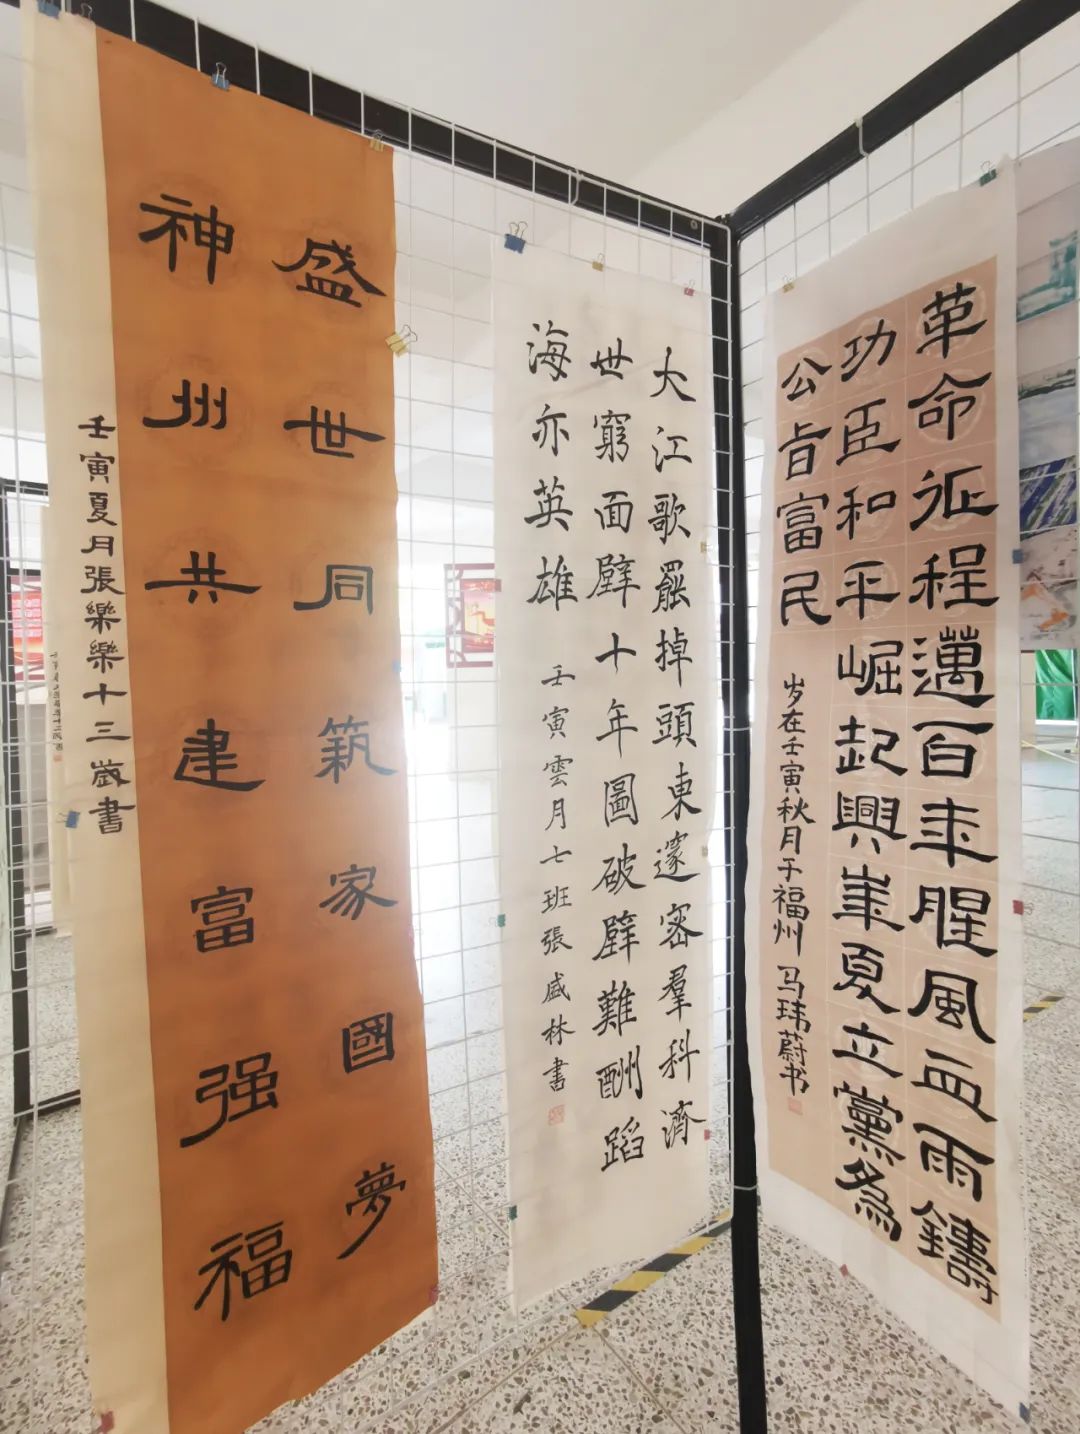 盛世同筑家國夢
神州共建富强福
壬寅夏月張樂樂十三歲書
大江歌罷掉頭東邃密羣科濟
世窮面壁十年圖破壁難酬蹈
海亦英雄
壬寅雲月七班張盛林書
革命征程邁百年腥風血雨鑄
功臣和平崛起興華夏立黨為
公旨富民
岁在壬寅秋月于福州 马玮蔚书